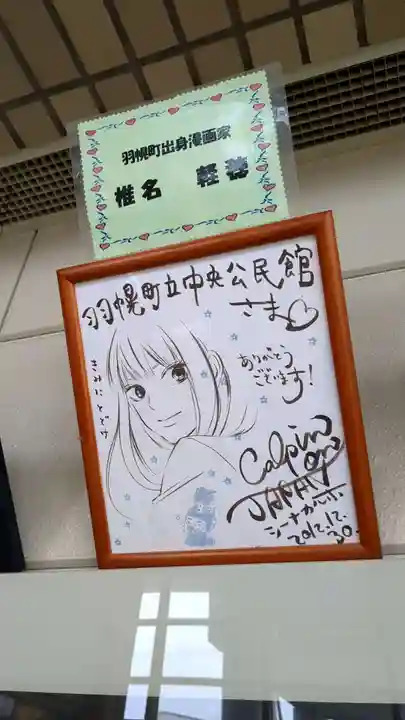 羽幌町出身漫画家
椎名 軽穂
羽幌町立中央公民館
さま
きみにとどけ
ありがとう
ございます!
シーナカルホ
2012.12.
30.